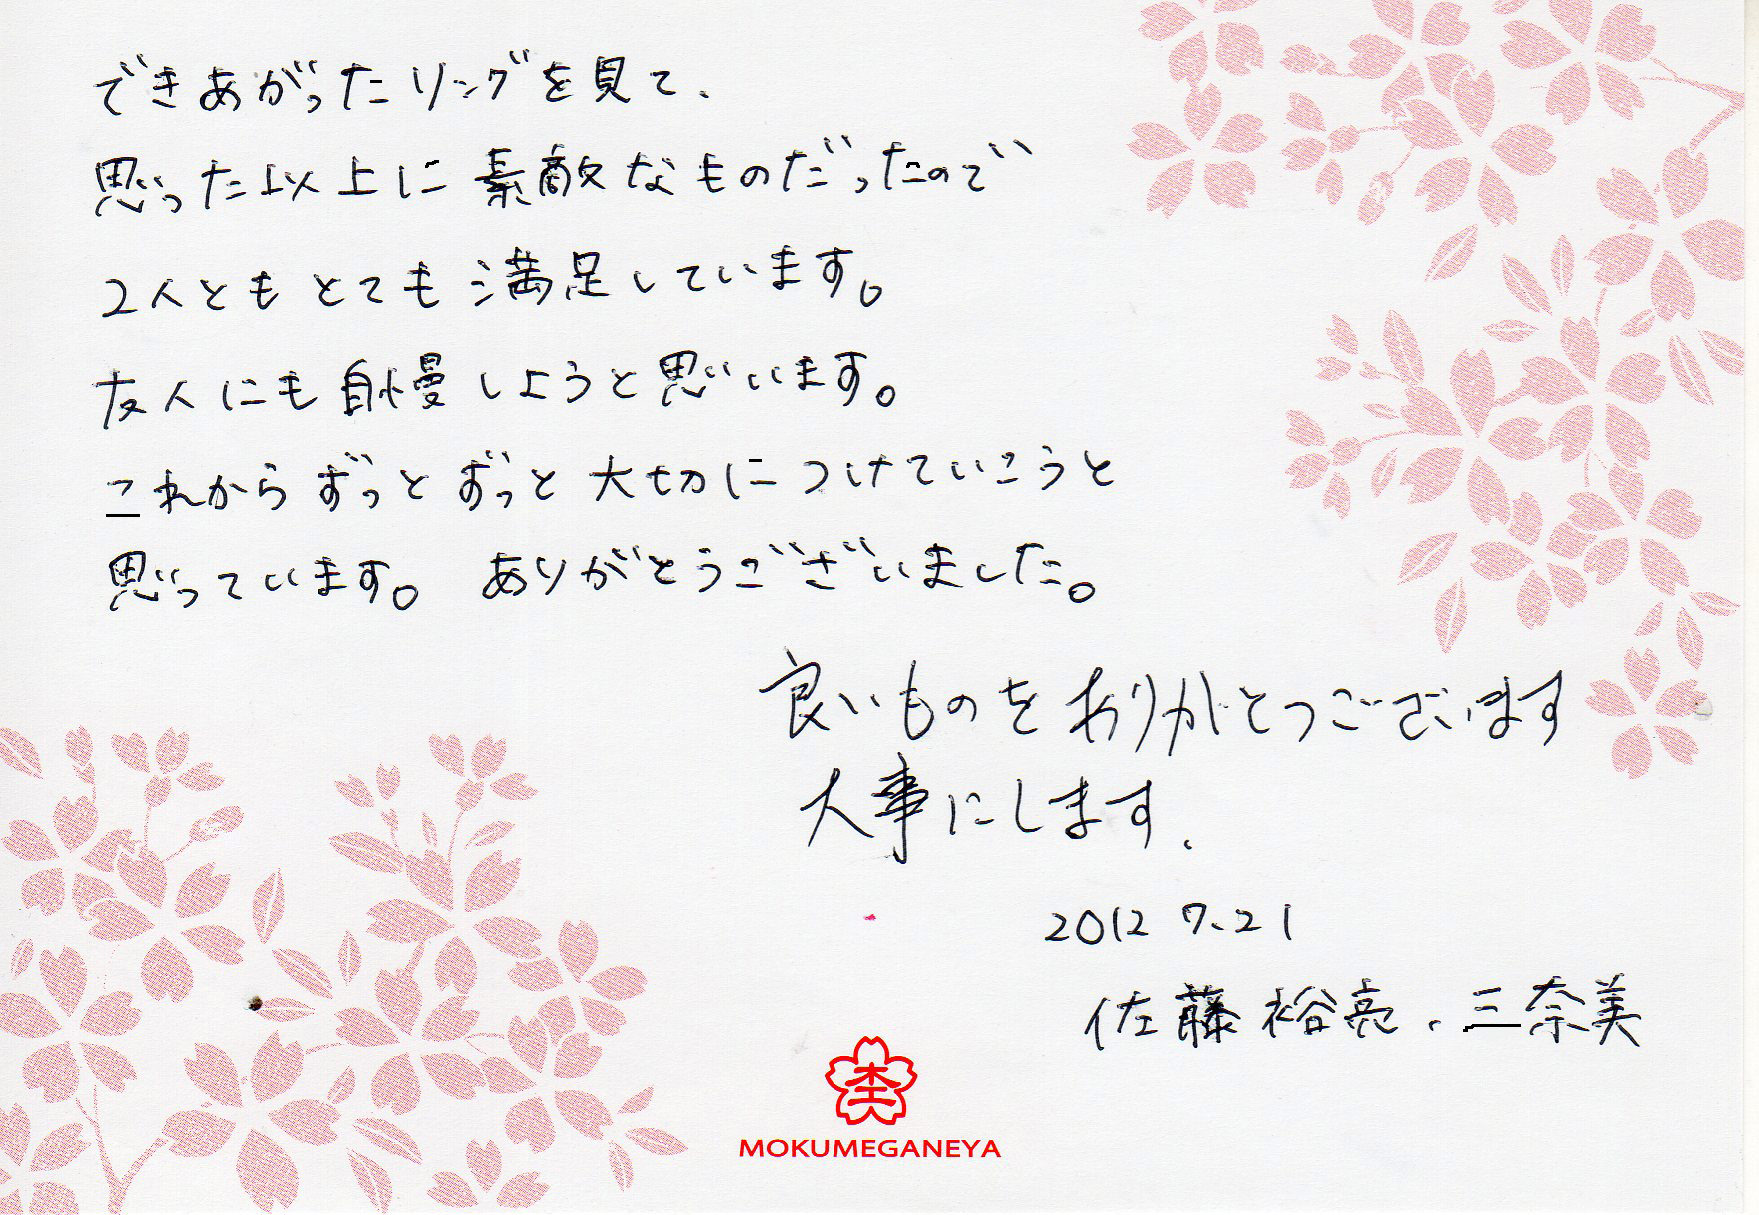 できあがったリングを見て、
思った以上に素敵なものだったので
2人ともとても満足しています。
友人にも自慢しようと思います。
これからずっとずっと大切につけていこうと
思っています。ありがとうございました。
良いものをありがとうございます
大事にします、
2012 7.21
佐藤裕亮・三奈美
MOKUMEGANEYA